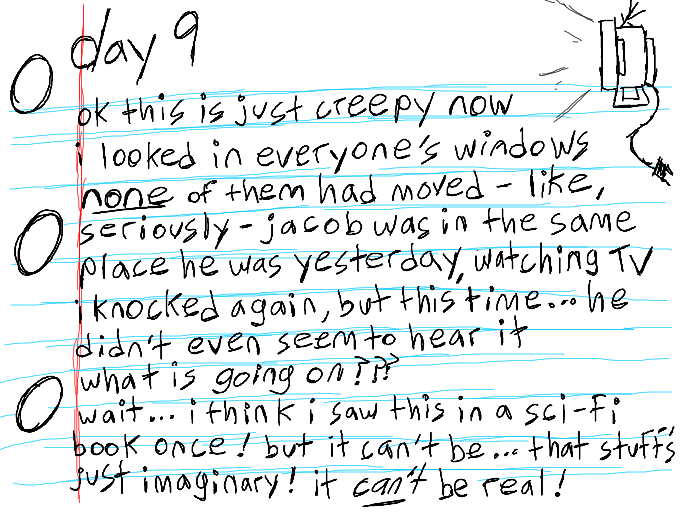 day 9
ok this is just creepy now
i looked in everyone's windows
none of them had moved - like,
seriously - jacob was in the same
place he was yesterday, watching TV
i knocked again, but this time... he
didn't even seem to hear it
what is going on???
wait... i think i saw this in a sci-fi
book once! but it can't be... that stuff's
just imaginary! it can't be real!